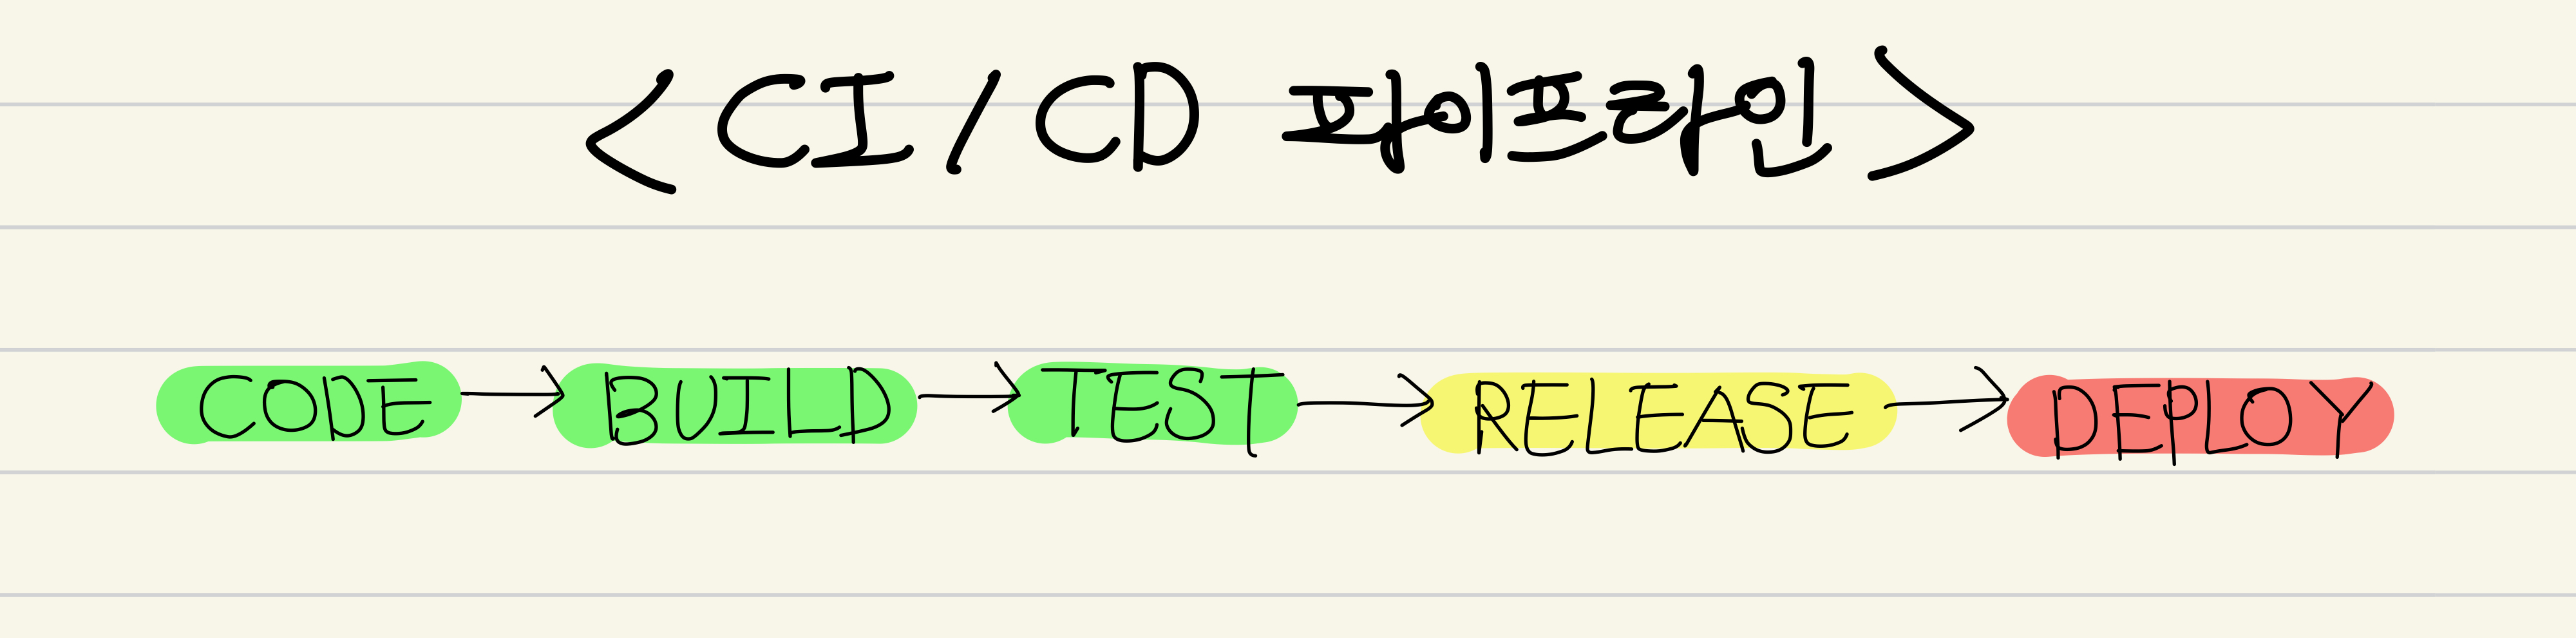 <CI/CD 파이프라인>
CODE → BUILD → TEST → RELEASE → DEPLOY